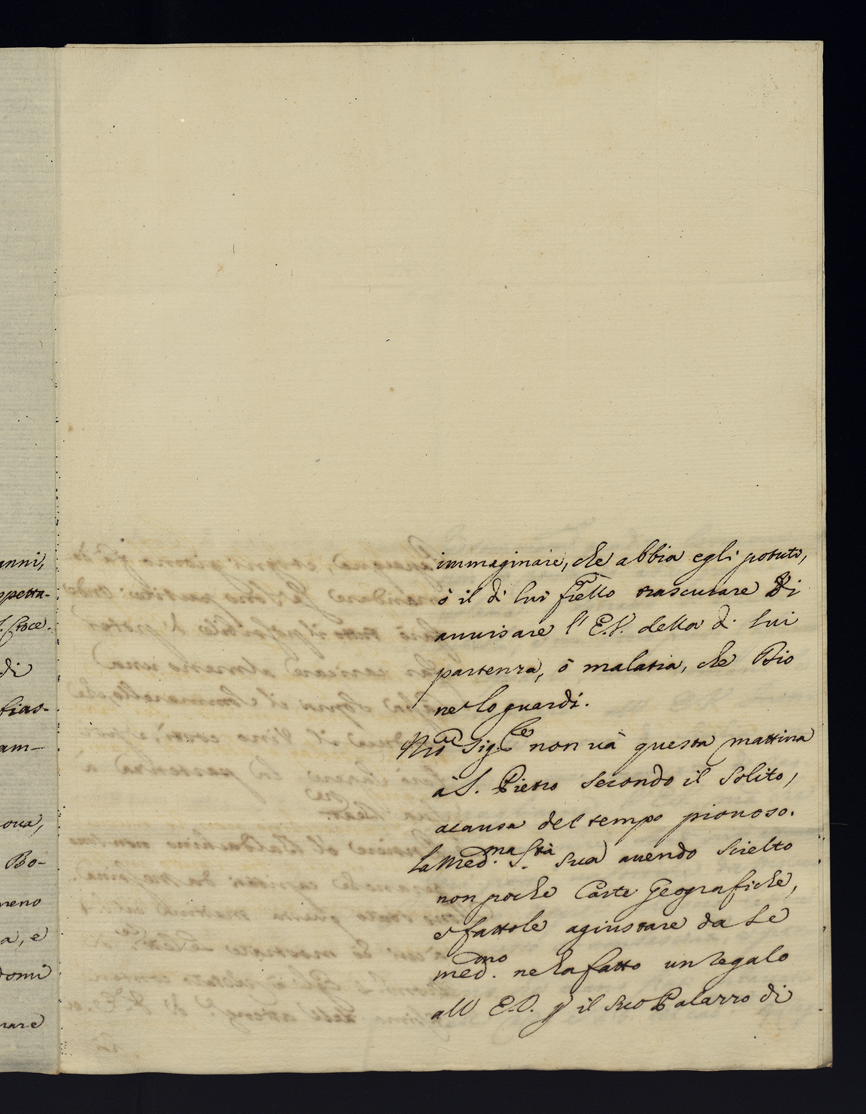 anni,
spetta-
S. Croce.
di
fias-
am-
ova,
Bo-
meno
a, e
domi
nare
immaginare, che abbia egli potuto,
ò il di lui frello trascurare di
avvisare l'E.V. della di lui
partenza, ò malatia, che Dio
ne lo guardi.
Nro Sig.re non và questa mattina
à S. Pietro secondo il solito,
acausa del tempo piovoso.
La Med.ma S.tà sua avendo scielto
non poche Carte Geografiche,
e fattole agiustare da Se
med.mo ne ha fatto un regalo
all' E.V. p il suo Palazzo di